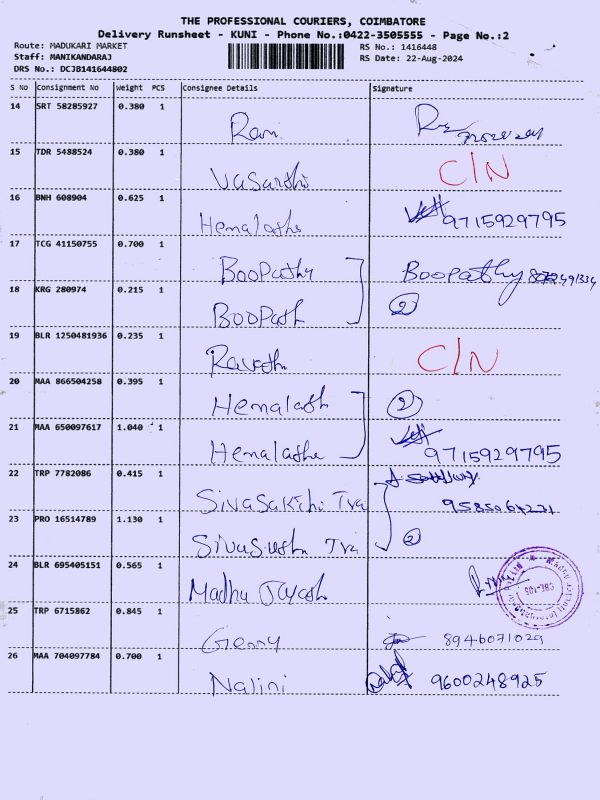 THE PROFESSIONAL COURIERS, COIMBATORE
Delivery Runsheet - KUNI - Phone No.:0422-3505555 - Page No.:2
Route: MADUKARI MARKET RS No.: 1416448
Staff: MANIKANDARAJ RS Date: 22-Aug-2024
DRS No.: DCJB141644802
S No Consignment No Weight PCS Consignee Details Signature
14 SRT 58285927 0.380 1
Ravi
15 TDR 5488524 0.380 1
C/N
16 BNH 608904 0.625 1
Hemalatha 9715929795
17 TCG 41150755 0.700 1
Boopathy Boopathy
18 KRG 280974 0.215 1
Boopath 2
19 BLR 1250481936 0.235 1
C/N
20 MAA 866504258 0.395 1
Hemalath 2
21 MAA 650097617 1.040 1
Hemalatha 9715929795
22 TRP 7782086 0.415 1
Sivasakthi Tra
23 PRO 16514789 1.130 1
Tra 2
24 BLR 695405151 0.565 1
Madhu
25 TRP 6715862 0.845 1
Genny 8946071029
26 MAA 704097784 0.700 1
Nalini 9600248925